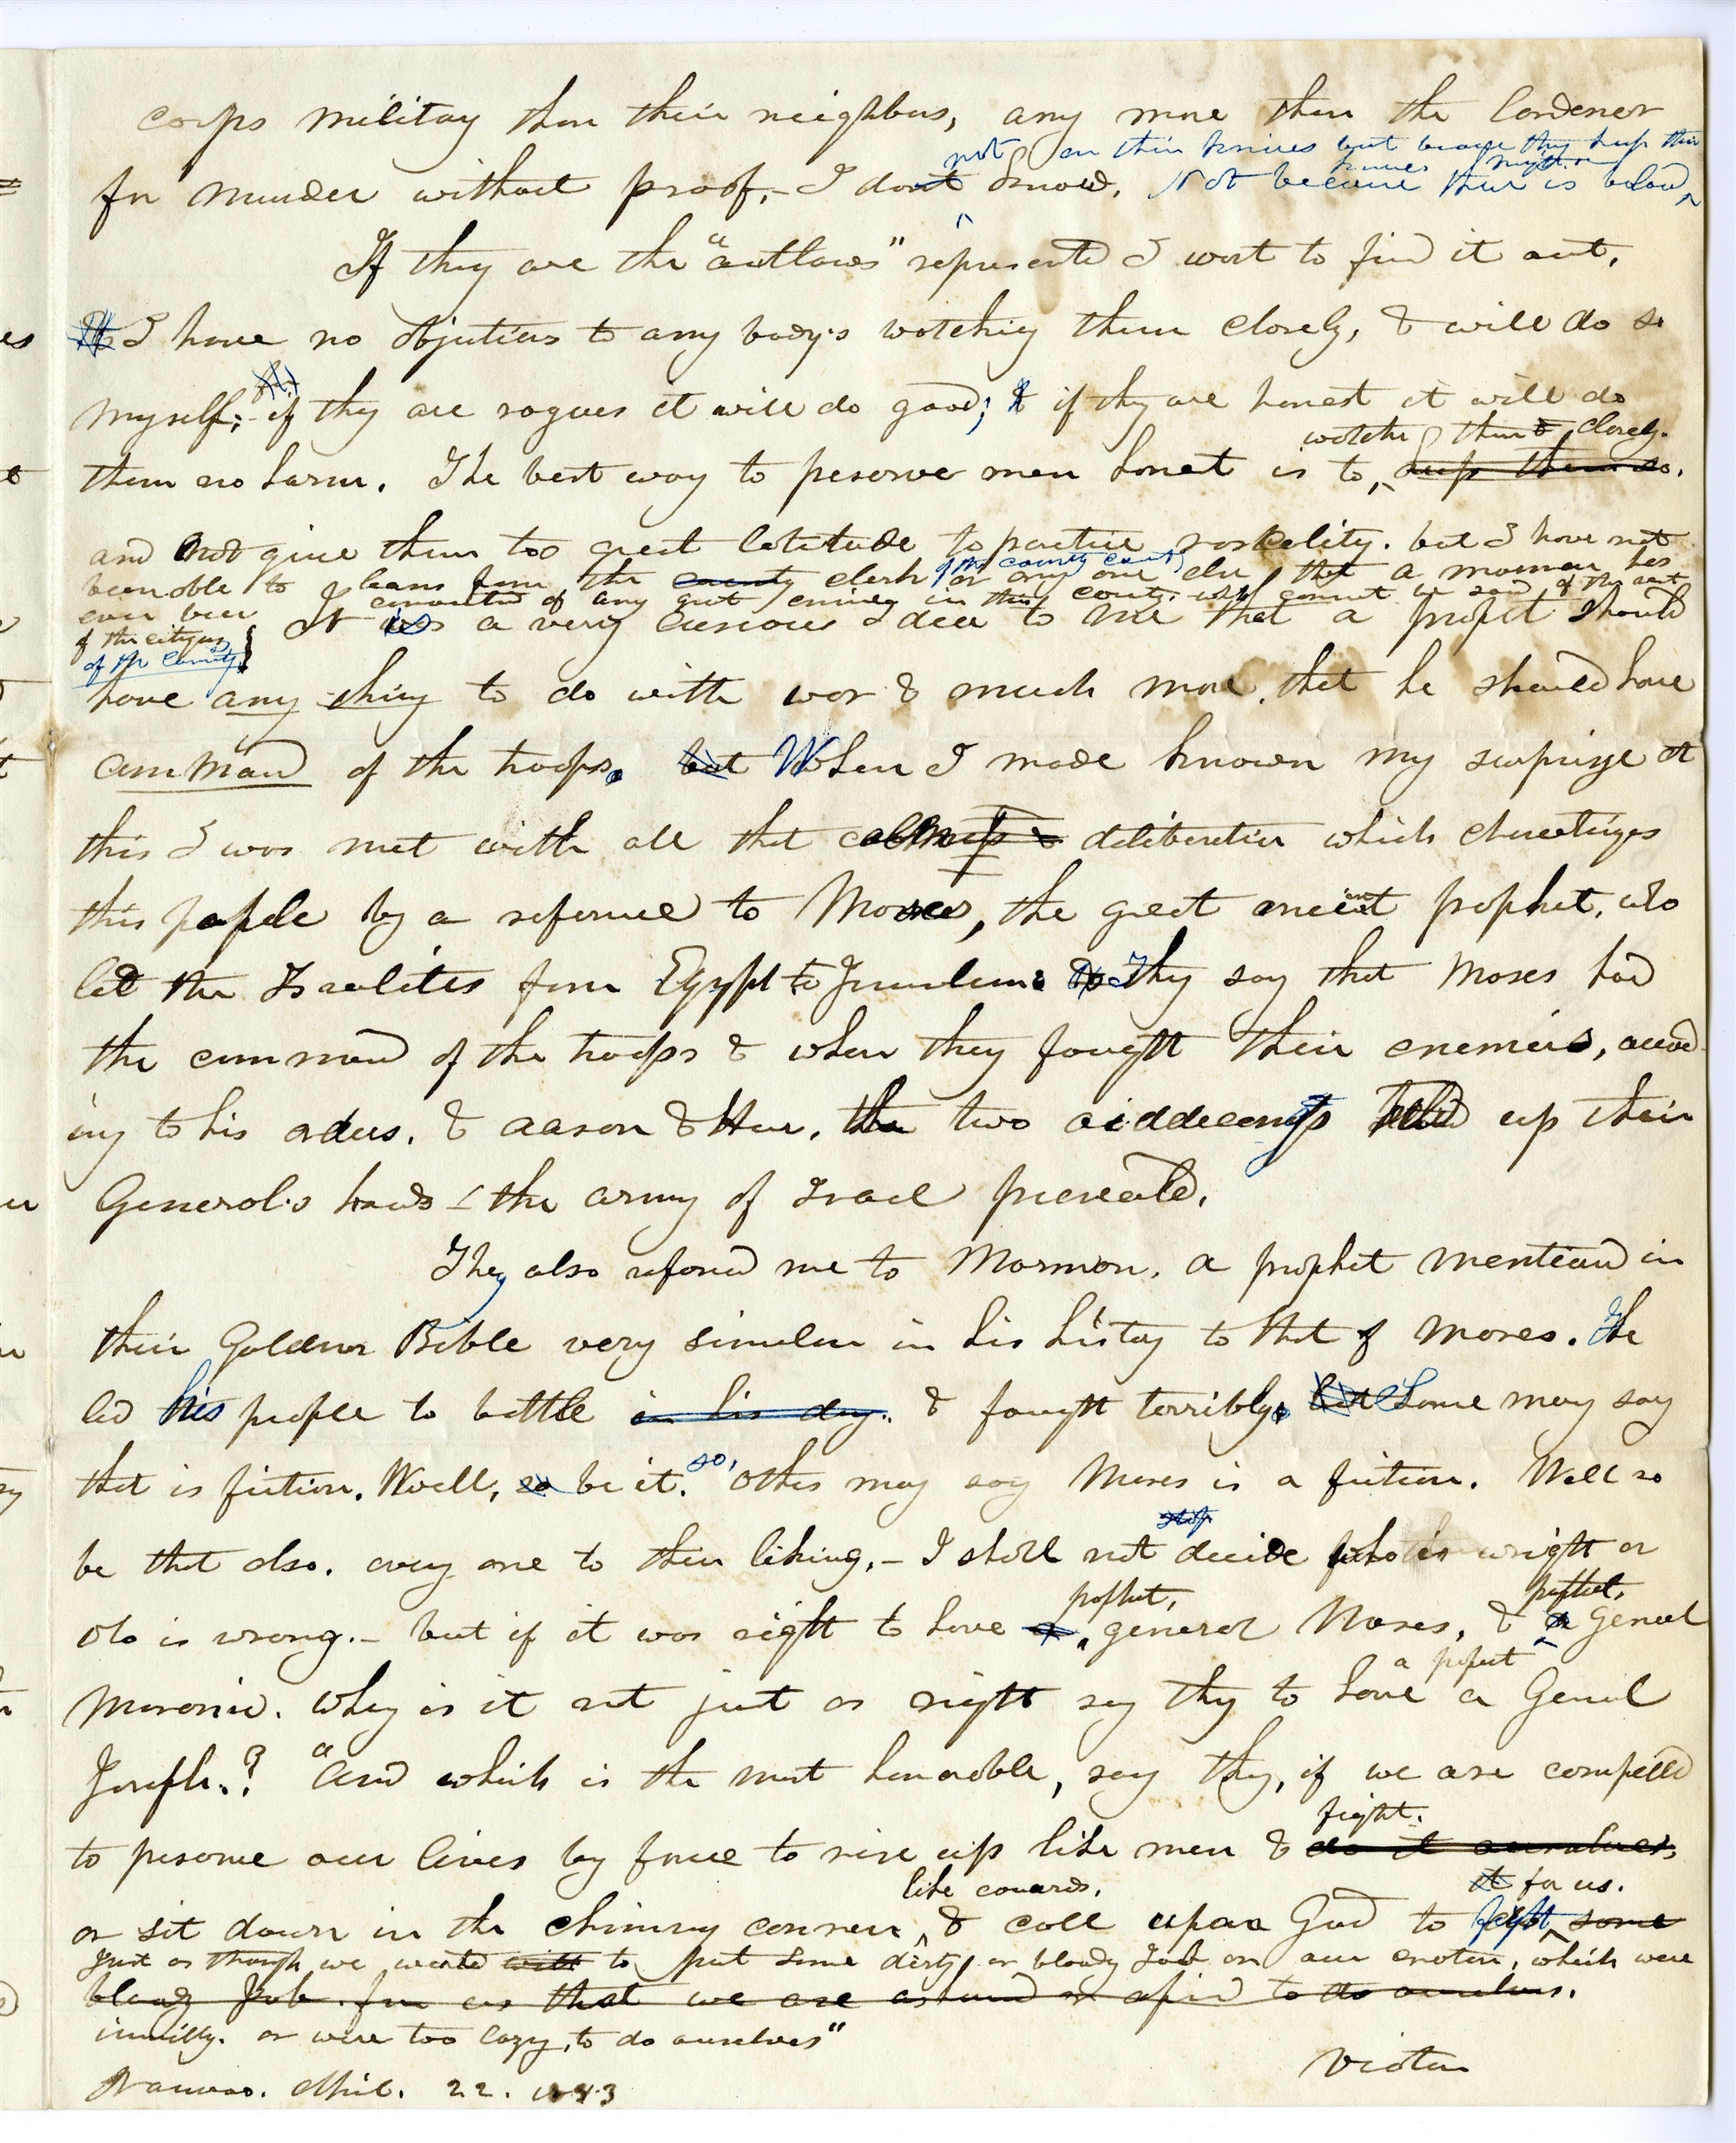 corps military than their neighbors, any more than the
not on their knives but because they keep their
for murder without proof,- I dont know. Not because there is blood
If they are the "outlaws" represented I want to find it out.
I have no objections to any body's watching them closely, & will do so
myself; if they are rogues it will do good; & if they are honest it will do
watche them closely.
them no harm. The best way to preserve men honest is to keep them so.
and not give them too great latitude to practice rascality. but I have not
of the county court
been able to learn from the county clerk or any one else that a mormon has
ever been convicted of any great crime in this county. which cannot be said of the rest
of the citizens
of the County.
It is a very curious idea to me that a prophet should
have any thing to do with war & much more that he should have
command of the troops. but When I made known my surprize at
this I was met with all that calmness & deliberation which charactizes
this people by a refernce to Moses, the great ancient prophet, who
led the Israelites from Egypt to Jerusalem. They say that Moses had
the command of the troops & when they fought their enemies, accord
ing to his orders, & aaron & Hur, the two aiddecamps held up their
General's hands - the army of Israel prevailed.
They also refered me to Mormon, a prophet mentiond in
their Golden Bible very similar in his history to that of Moses. He
led his people to battle in his day. & fought terribly. but Some may say
that is fiction. Well, so be it. so, Others may say Moses is a fiction. Well so
stop
be that also. every one to their liking,- I shall not decide who is wright or
prophet, prophet,
who is wrong.- but if it was right to have a general Moses, & a General
a prophet
Moroni. why is it not just as right say they to have a General
Joseph.? "And which is the most honorable, say they, if we are compelled
fight.
to preserve our lives by force to rise up like men & do it ourselves,
like cowards, it for us.
or sit down in the chimny corner, & call upon God to fight some
Just as though we wanted with to put some dirty or bloody Job on an enoter, which were
bloody Job for us that we are ashamed or afraid to do ourselves.
unwilly. or were too lazy, to do ourselves"
Victor
Nauvoo. April. 22. 1843